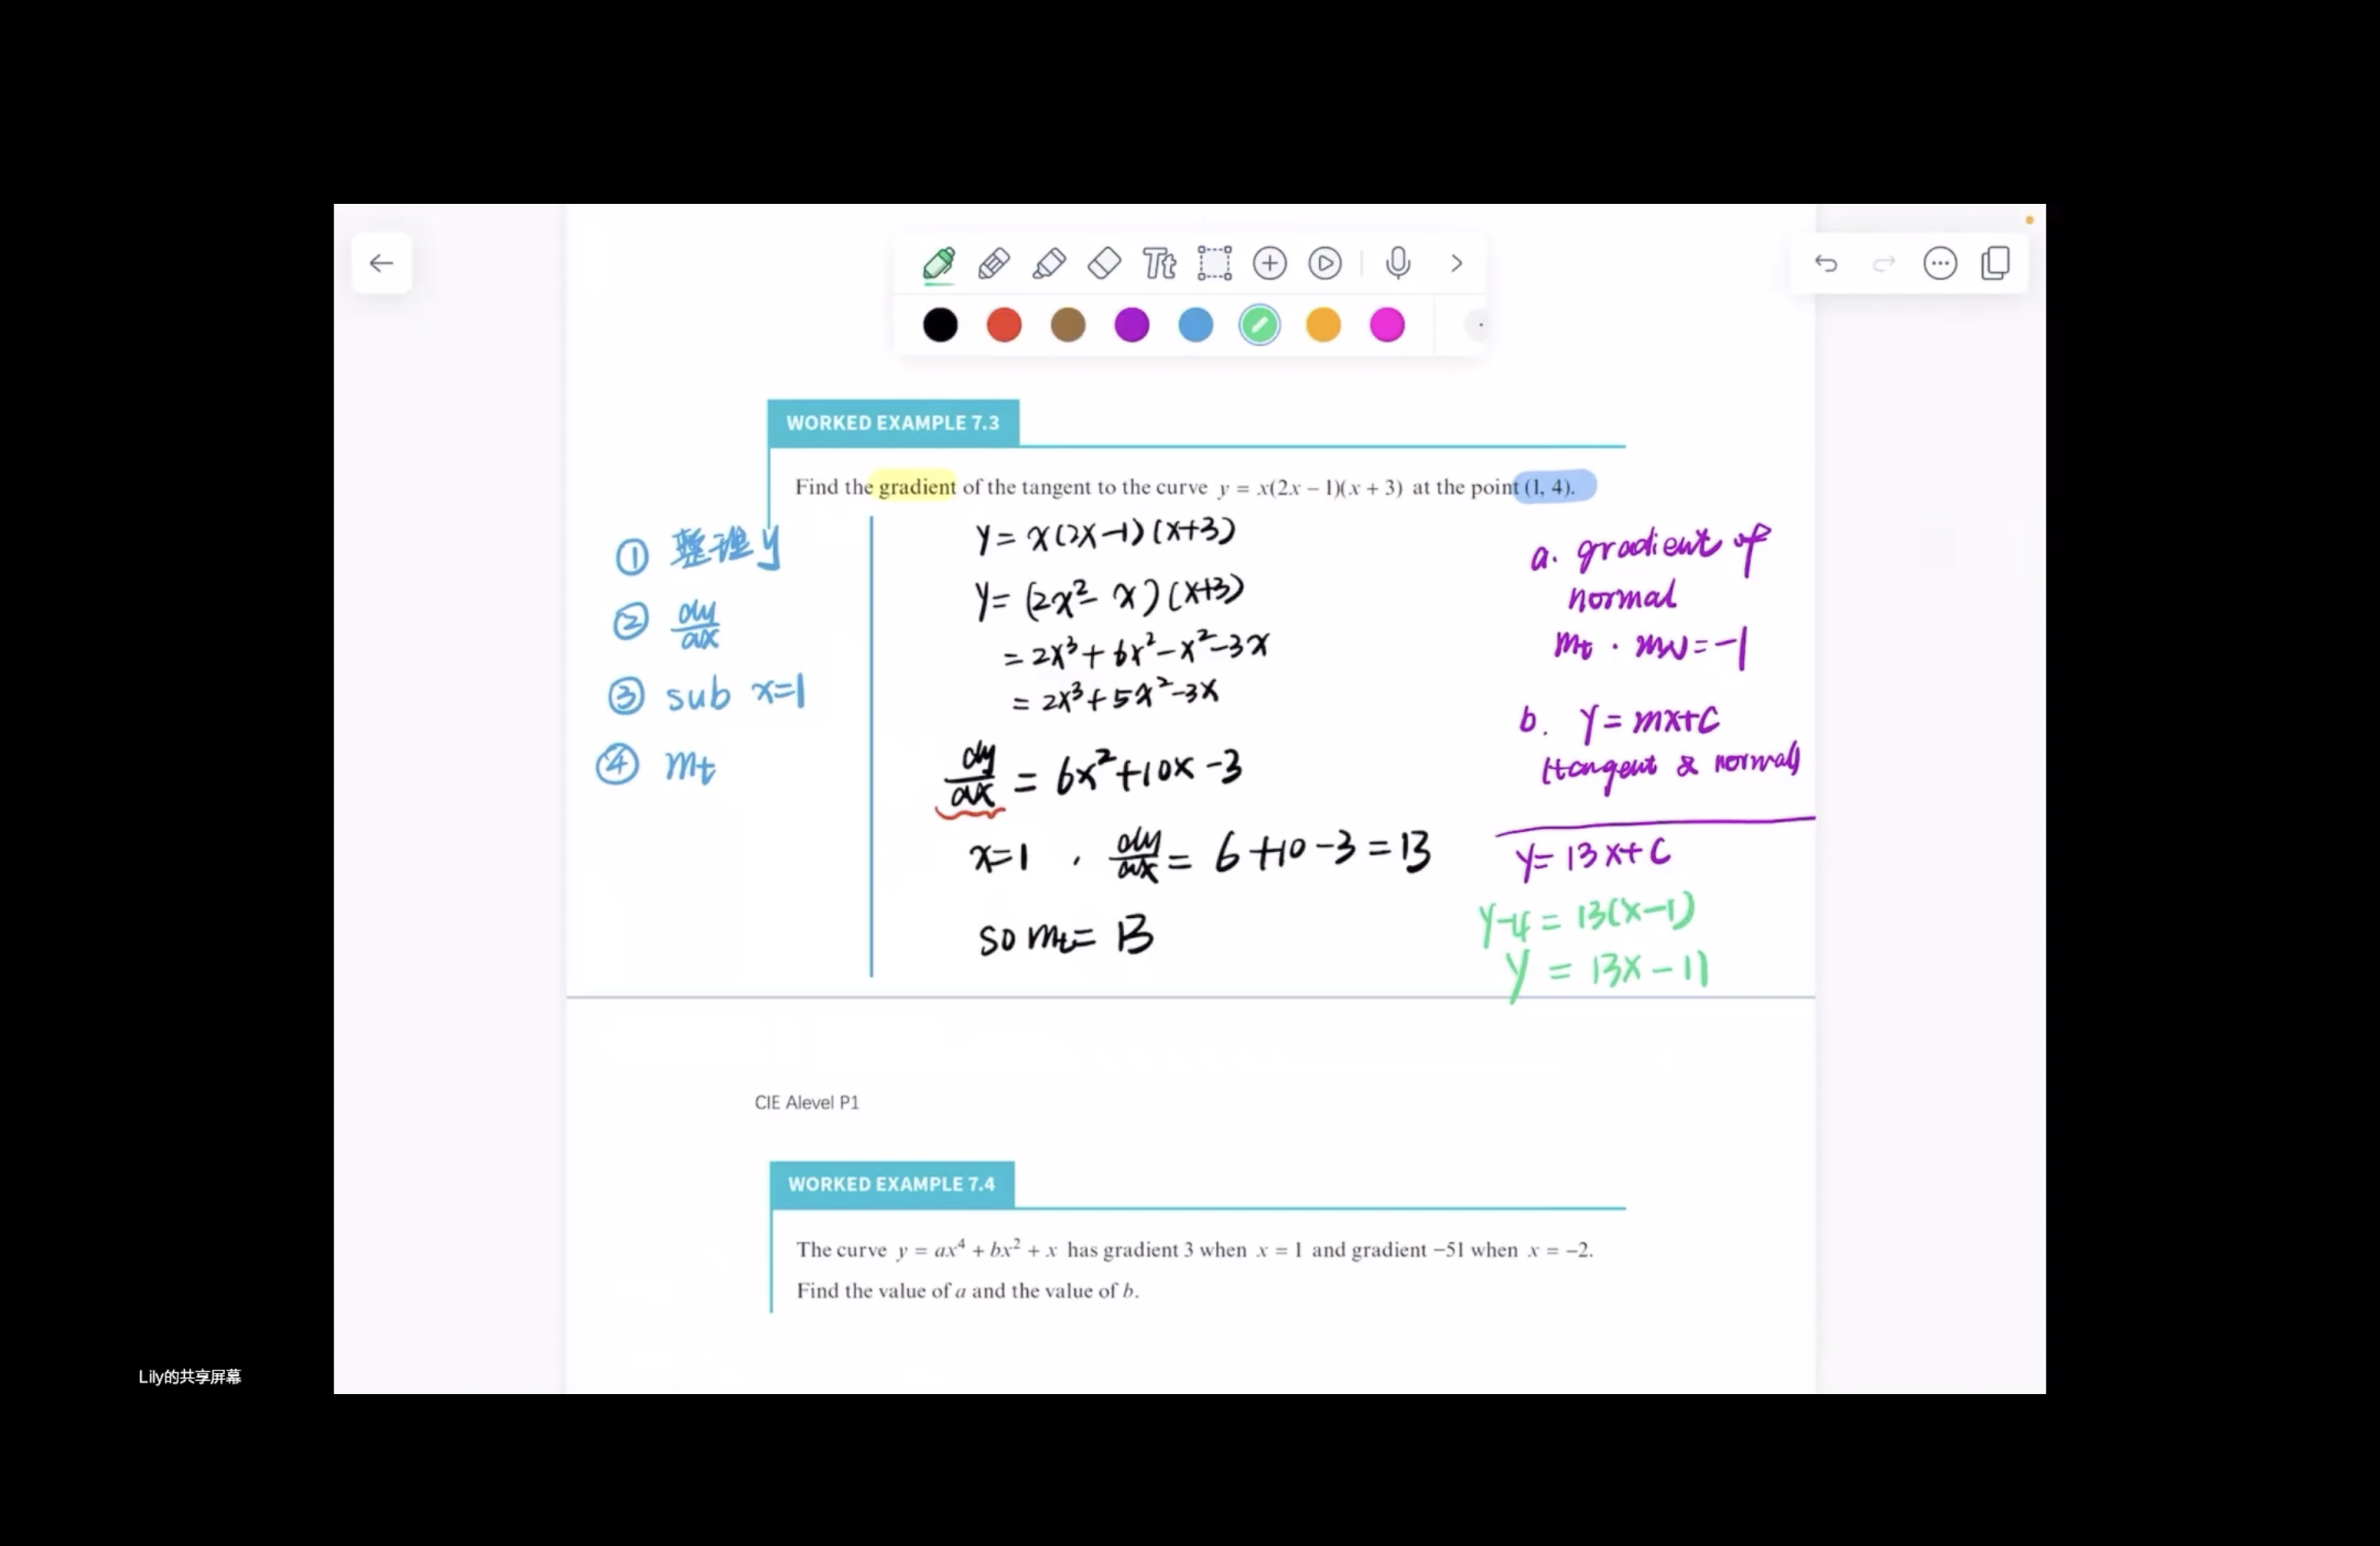 Tt
WORKED EXAMPLE 7.3
Find the gradient of the tangent to the curve y = x(2x − 1)(x + 3) at the point (1, 4).
① 整理y
② dy/dx
③ sub x=1
④ mt
y = x(2x-1)(x+3)
y = (2x²- x)(x+3)
= 2x³+6x²-x²-3x
= 2x³+5x²-3x
dy/dx = 6x²+10x-3
x=1 , dy/dx = 6+10-3=13
so mt= 13
a. gradient of
normal
mt · mN=-1
b. y=mx+c
(tangent & normal)
y=13x+c
y-4=13(x-1)
y = 13x-11
CIE Alevel P1
WORKED EXAMPLE 7.4
The curve y = ax⁴ + bx² + x has gradient 3 when x = 1 and gradient −51 when x = −2.
Find the value of a and the value of b.
Lily的共享屏幕